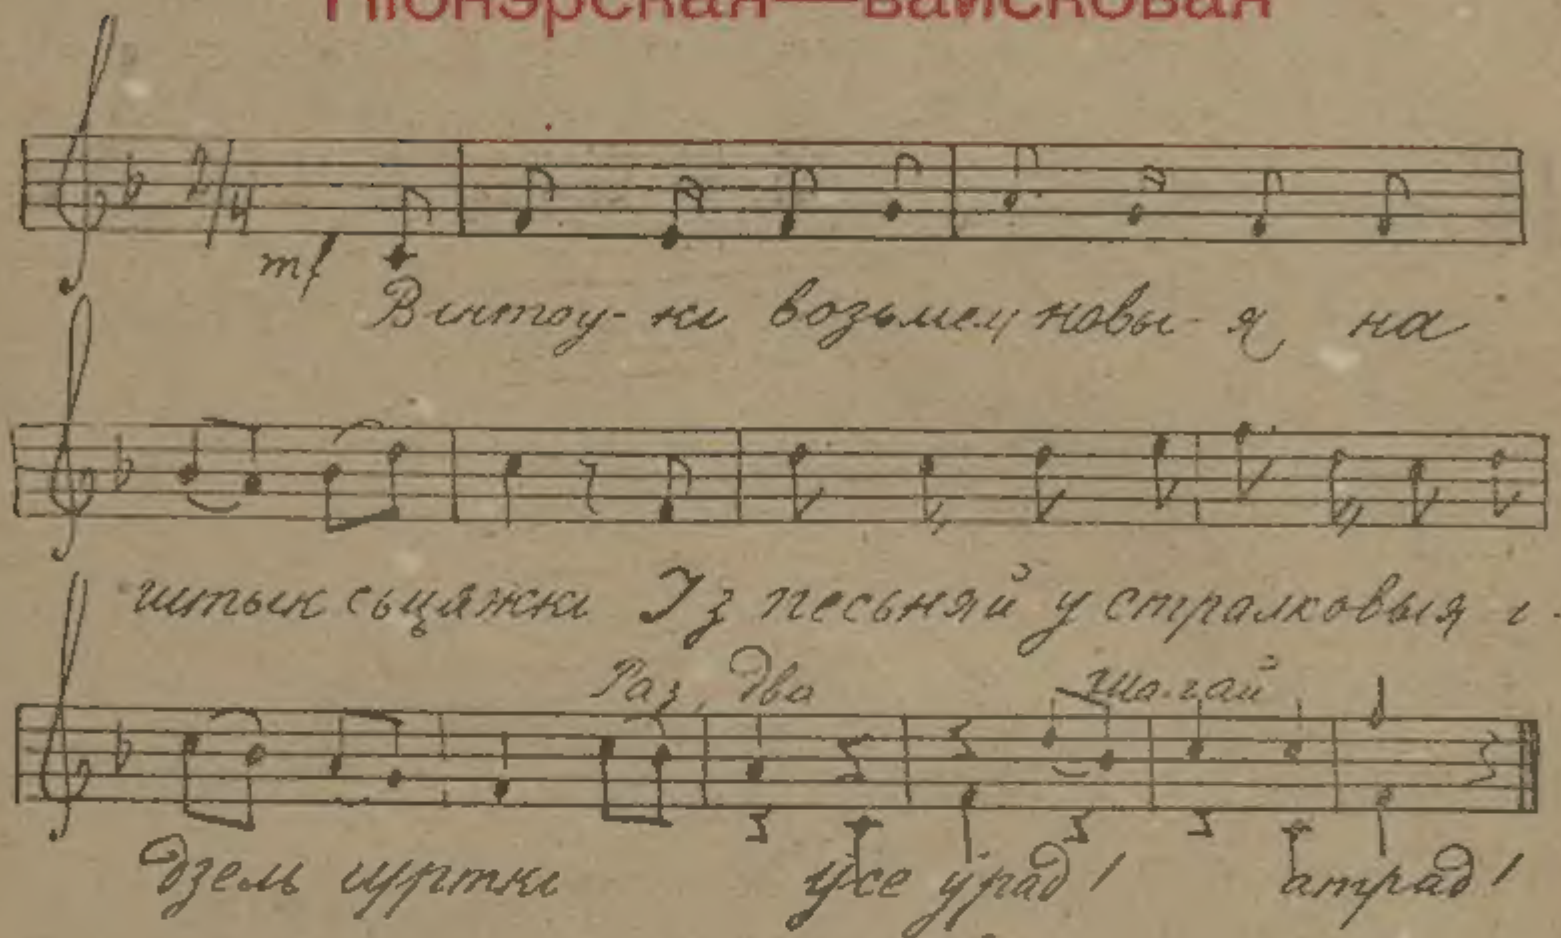 Піонэрская—вайсковая
2/4
mf
Вінтоу- кі возьмем новы- я на
штык сьцяжкі Із песьняй у стралковыя і-
Раз, два шагай
дзем гурткі усе ў рад! атрад!